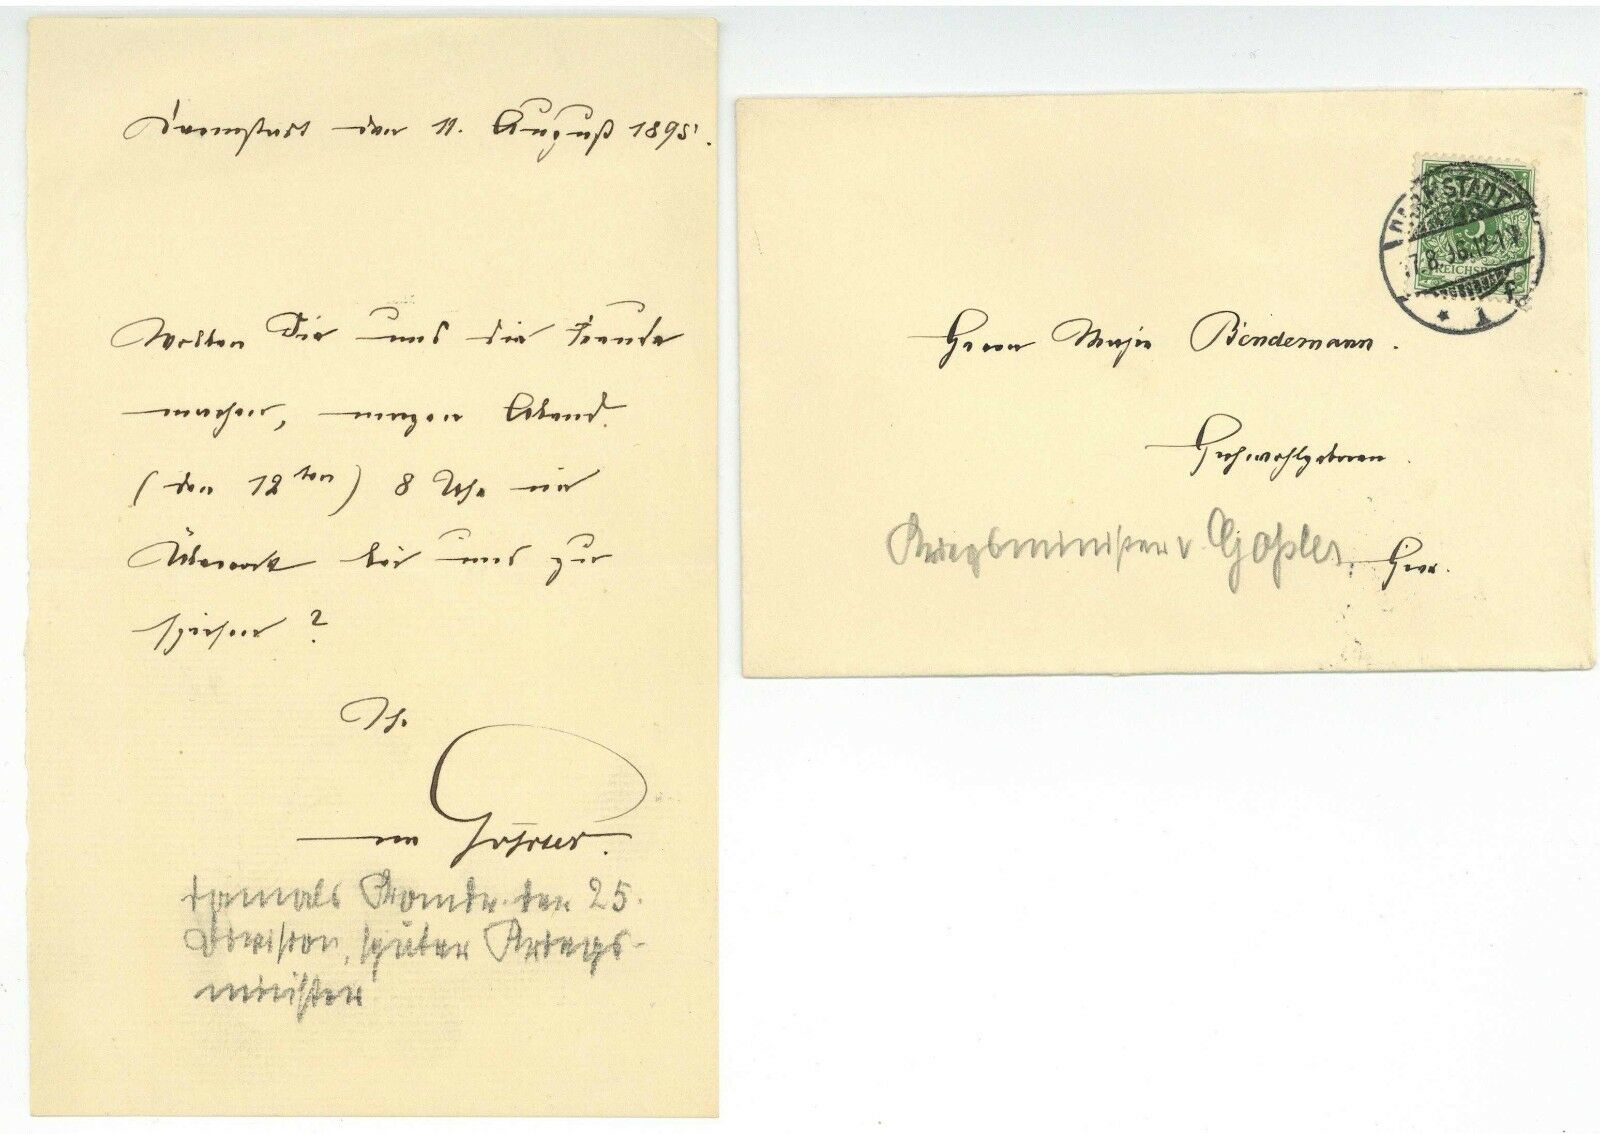 Darmstadt den 11. August 1895.
Wollen Sie uns die Freude
machen, morgen Abend
(den 12ten) 8 Uhr im
Überrock bei uns zu
speisen?
Ihr
von Goßler.
damals Komdr. der 25.
Division, später Kriegs-
minister
DARMSTADT
5
.7.8.96.12-1 N
REICHSPOST
* 1 f
Herrn Major Bindemann.
Hochwohlgeboren.
Kriegsminister v. Goßler. Hier.